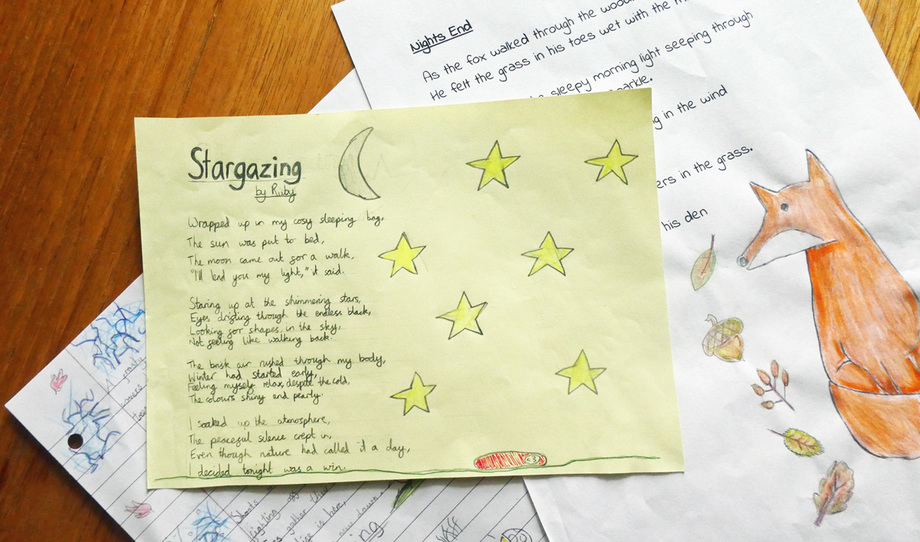 Stargazing
by Ruby
Wrapped up in my cosy sleeping bag,
The sun was put to bed,
The moon came out for a walk,
"I'll lend you my light," it said.
Staring up at the shimmering stars,
Eyes drifting through the endless black,
Looking for shapes, in the sky,
Not feeling like walking back.
The brisk air rushed through my body,
Winter had started early,
Feeling myself relax, despite the cold,
The colours shiny and pearly.
I soaked up the atmosphere,
The peaceful silence crept in,
Even though nature had called it a day,
I decided tonight was a win.
Nights End
As the fox walked through the
He felt the grass in his toes wet with the
sleepy morning light seeping through
in the wind
in the grass.
his den